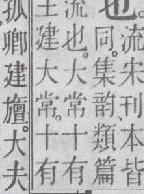 也。流宋刊本皆
同。集韵類篇
流也。大常。十有
王建大常十有
孤卿建旜。大夫